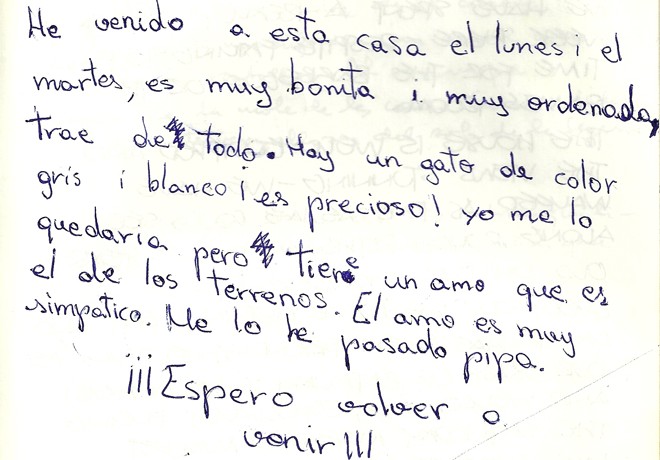 He venido a esta casa el lunes i el
martes, es muy bonita i muy ordenada,
trae de todo. Hay un gato de color
gris i blanco ¡es precioso! yo me lo
quedaria pero tiene un amo que es
el de los terrenos. El amo es muy
simpatico. Me lo he pasado pipa.
¡¡¡Espero volver a
venir!!!